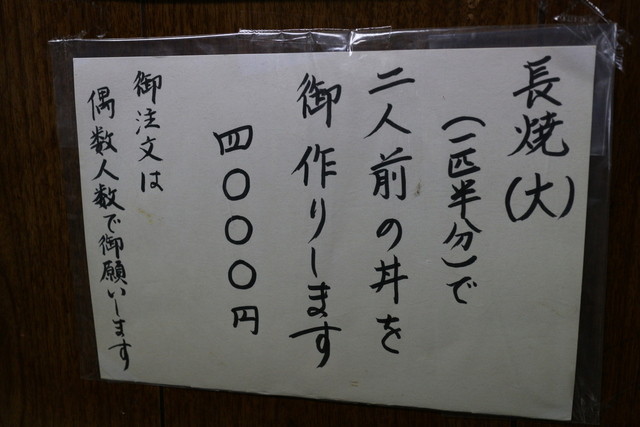 長焼(大)
(一匹半分)で
二人前の丼を
御作りします
四〇〇〇円
御注文は
偶数人数で御願いします